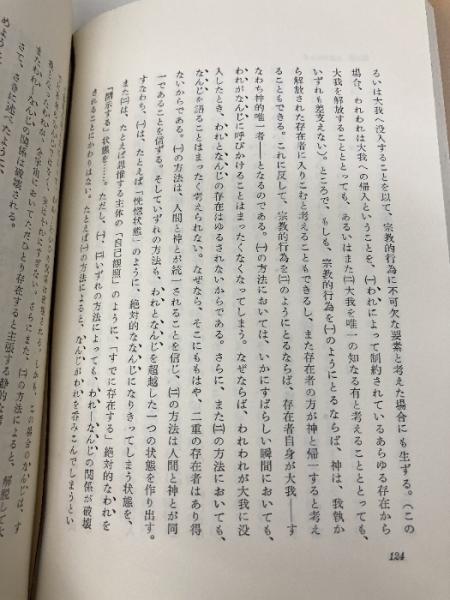 るいは大我へ没入することを以て、宗教的行為に不可欠な要素と考えた場合にも生ずる。(この
場合、われわれは大我への帰入ということを、㈠われによって制約されているあらゆる存在から
大我を解放することととっても、あるいはまた㈡大我を唯一の知なる有と考えることととっても、
いずれも差支えない)。ところで、もしも、宗教的行為を㈠のようにとるならば、神は、我執か
ら解放された存在者に入りこむと考えることもできるし、また存在者の方が神と帰一すると考え
ることもできる。これに反して、宗教的行為を㈡のようにとるならば、存在者自身が大我――す
なわち神的唯一者――となるのである。㈠の方法においては、いかにすばらしい瞬間においても、
われがなんじに呼びかけることはまったくなくなってしまう。なぜならば、われわれが大我に没
入したとき、われとなんじの存在はゆるされないからである。さらに、また㈡の方法においても、
なんじを語ることはまったく考えられない。なぜなら、そこにももはや、二重の存在はあり得
ないからである。㈠の方法は、人間と神とが統一されることを信じ、㈡の方法は人間と神とが同一
であることを信ずる。そしていずれの方法も、われとなんじを超越した一つの状態を作り出す。
すなわち、㈠は、たとえば「恍惚状態」のように、絶対的ななんじになりきってしまう状態を、
また㈡は、たとえば思惟する主体の「自己観照」のように、「すでに存在する」絶対的なわれを
「開示する」状態を……。ただし、㈠、㈡いずれの方法によっても、われ―なんじの関係が破壊
されることにかわりはない。たとえば㈠の方法によると、なんじがわれを呑みこんでしまうとい
またわれ―なんじの関係は破壊される。
さて、さきに述べたように、
めようと
124